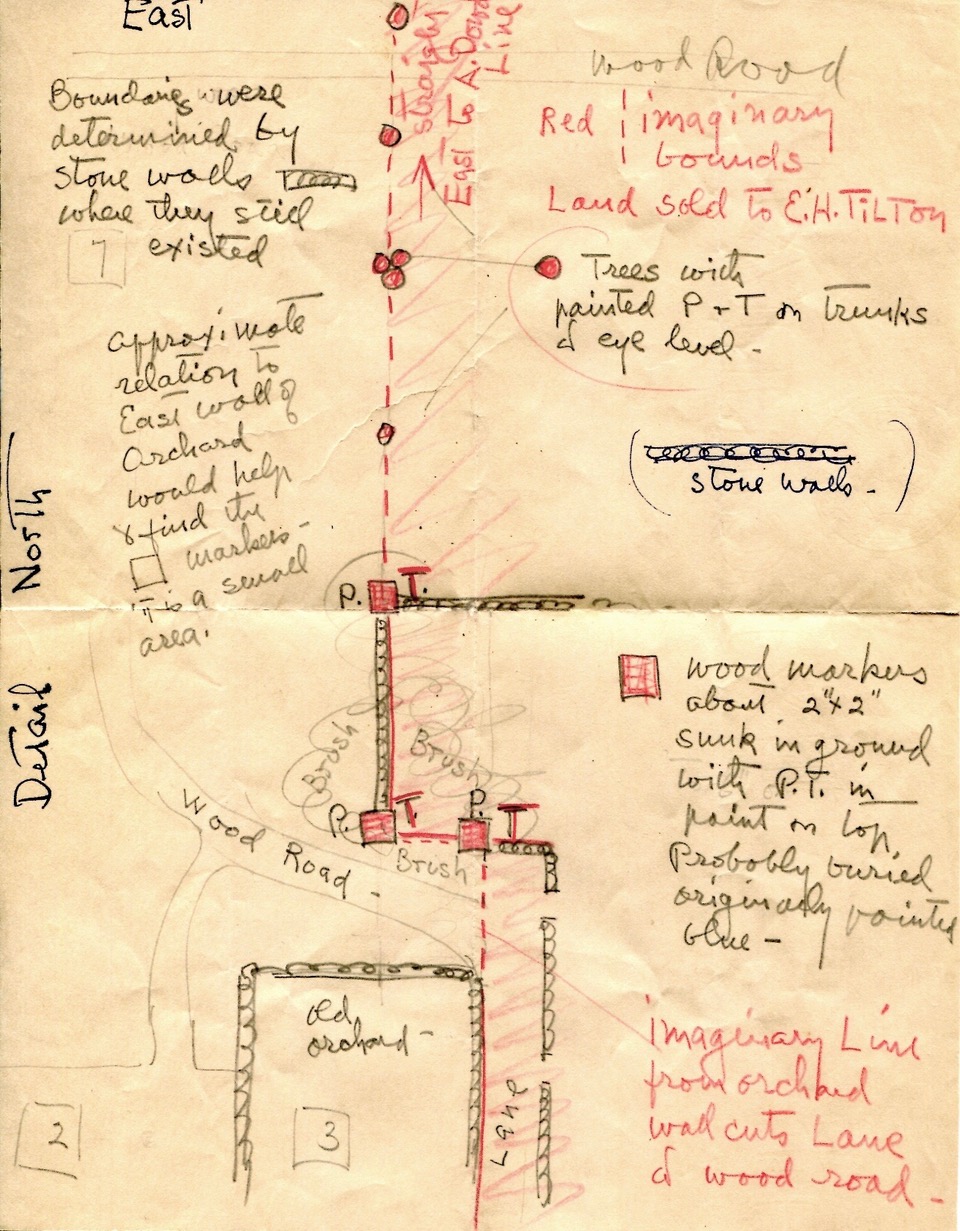 East
straight
East to A. Dowd
Line
Wood Road
Boundaries were
determined by
stone walls
where they still
existed
1
Red imaginary
bounds
Land sold to E.H. TILTON
Trees with
painted P + T on trunks
& eye level -
approximate
relation to
East wall of
Orchard
would help
& find the
markers -
it is a small
area.
(stone walls -)
North
Detail
P. T.
Brush
Brush
P. T. P. T
Brush
Wood Road -
wood markers
about 2"x2"
sunk in ground
with P.T. in
paint on top
Probably buried
originally painted
blue -
old
orchard -
Lane
imaginary Line
from orchard
wall cuts Lane
& wood road -
2
3